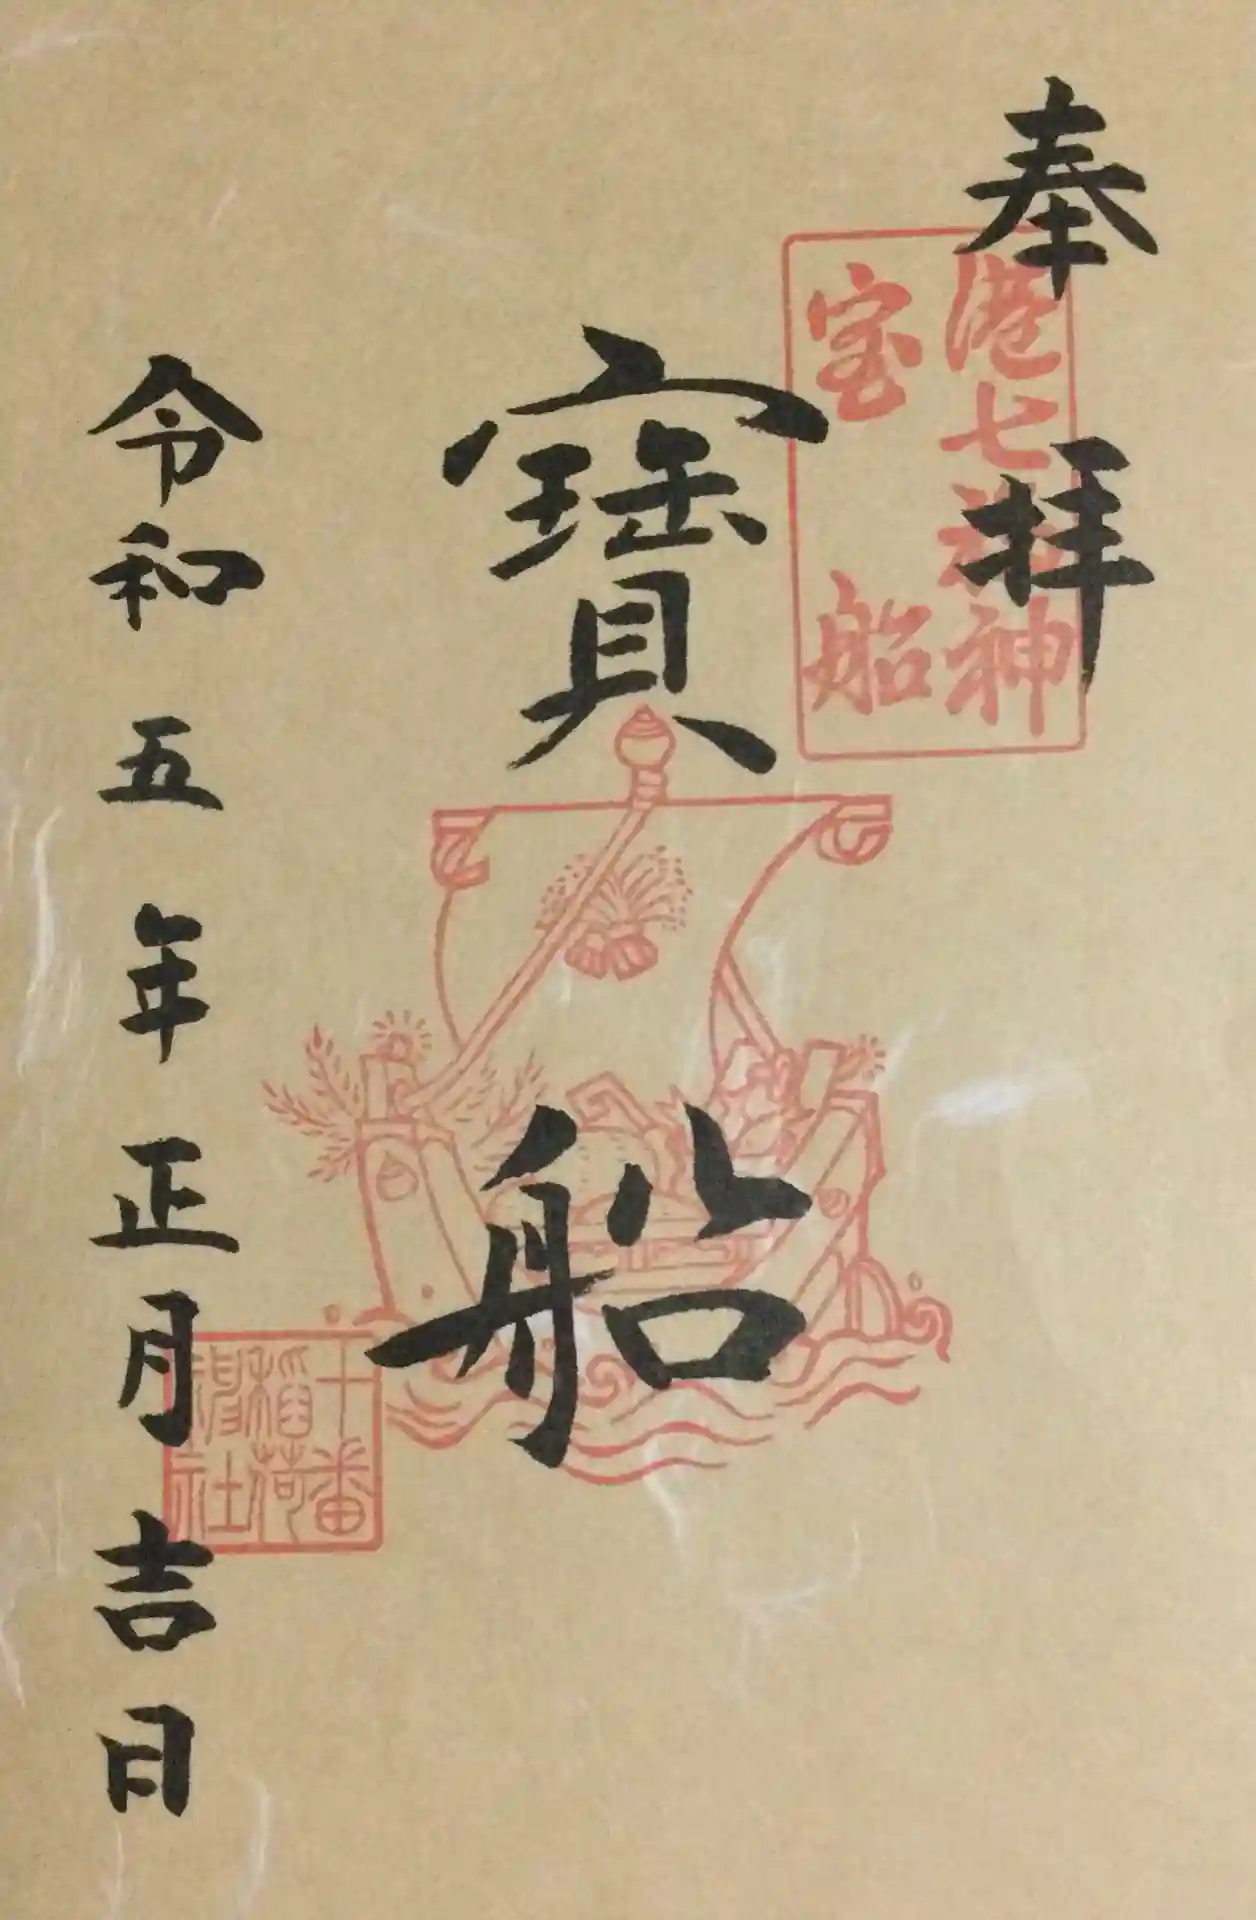 奉拝
港七福神
宝船
寶船
令和五年正月吉日
十番
稲荷
神社